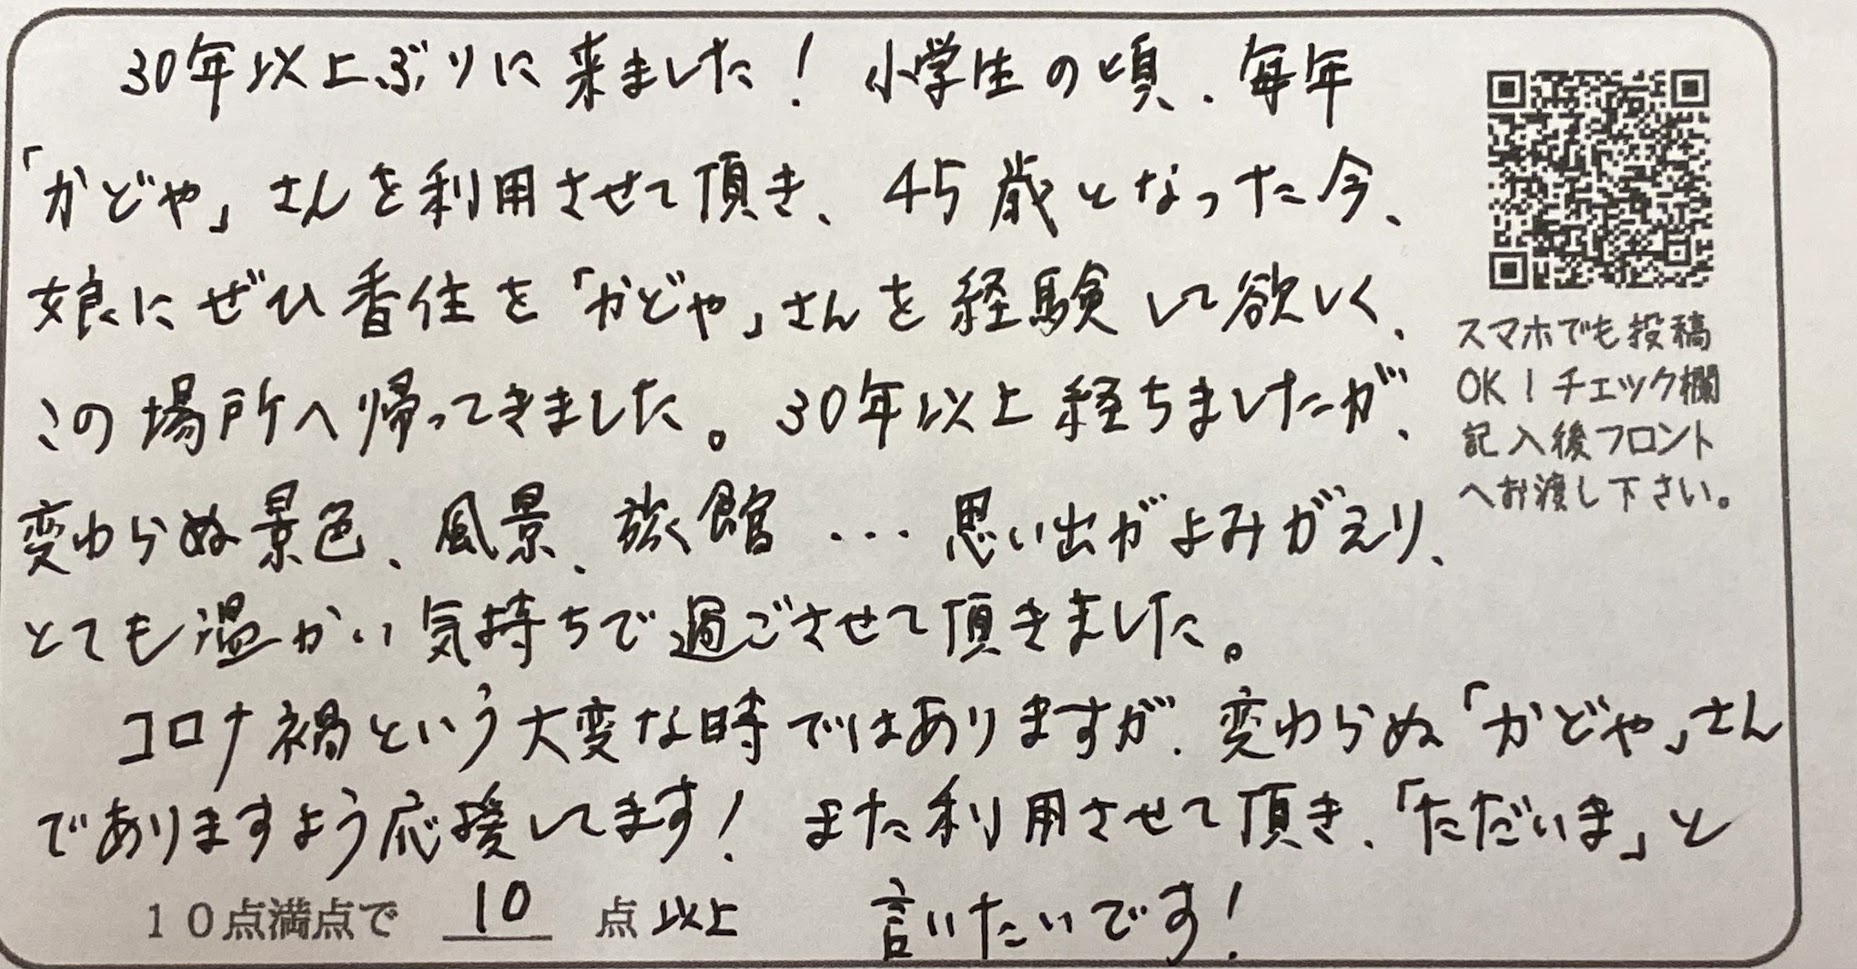 30年以上ぶりに来ました！ 小学生の頃、毎年
「かどや」さんを利用させて頂き、45歳となった今、
娘にぜひ香住を「かどや」さんを経験して欲しく、
この場所へ帰ってきました。30年以上経ちましたが、
変わらぬ景色、風景、旅館…思い出がよみがえり、
とても温かい気持ちで過ごさせて頂きました。
コロナ禍という大変な時ではありますが、変わらぬ「かどや」さん
でありますよう応援してます！ また利用させて頂き、「ただいま」と
言いたいです！
10点満点で 10 点以上
スマホでも投稿
OK！チェック欄
記入後フロント
へお渡し下さい。